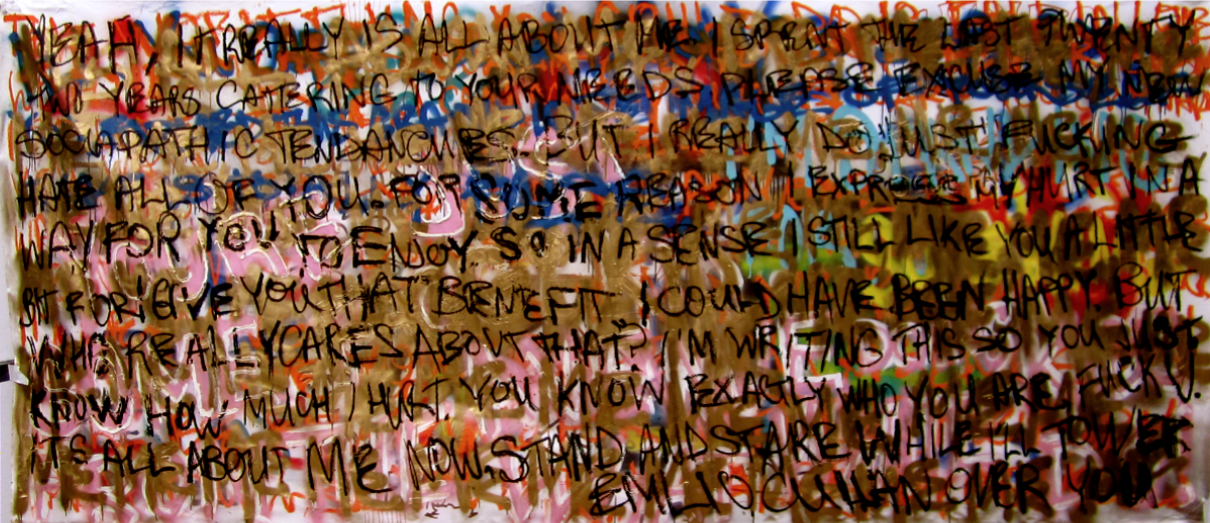 YEAH, IT REALLY IS ALL ABOUT ME I SPENT THE LAST TWENTY
TWO YEARS CATERING TO YOUR NEEDS PLEASE EXCUSE MY NEW
SOCIAPATHIC TENDANCIES BUT I REALLY DO JUST FUCKING
HATE ALL OF YOU. FOR SOME REASON I EXPRESS MY HURT IN A
WAY FOR YOU TO ENJOY. SO IN A SENSE I STILL LIKE YOU A LITTLE
BIT FOR I GIVE YOU THAT BENEFIT. I COULD HAVE BEEN HAPPY. BUT
WHO REALLY CARES ABOUT THAT? I'M WRITING THIS SO YOU JUST
KNOW HOW MUCH I HURT. YOU KNOW EXACTLY WHO YOU ARE, FUCK U.
IT'S ALL ABOUT ME NOW. STAND AND STARE WHILE I'LL TOWER
OVER YOU